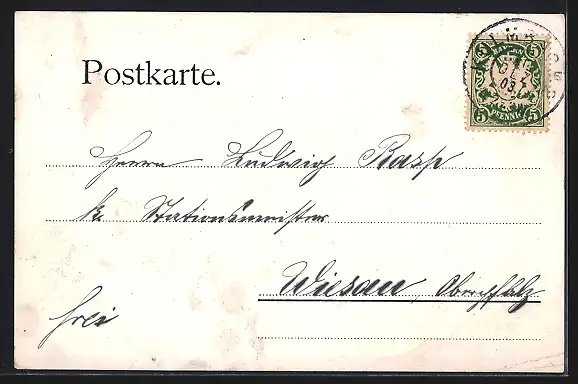 Postkarte.
5 BAYERN 5
03
5 PFENNIG 5
Herrn Ludwig Rasp
k. Stationsmeister
Wiesau, Oberpfalz
frei